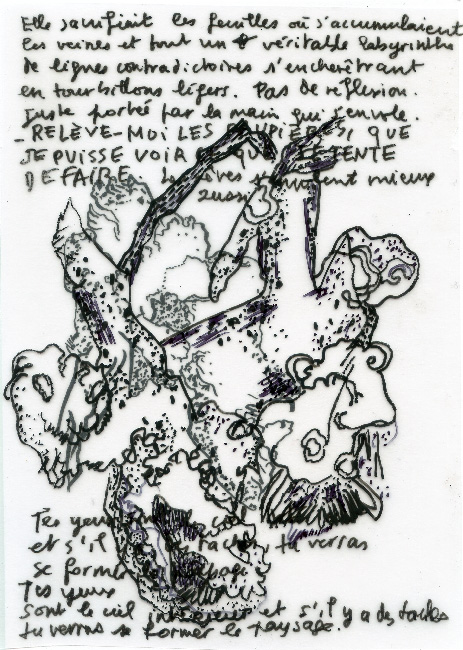 Elle sacrifiait les feuilles où s'accumulaient
les veines et tout un véritable labyrinthe
de lignes contradictoires s'enchevêtrant
en tourbillons légers. Pas de réflexion.
Juste portée par la main qui s'envole.
- RELÈVE-MOI LES PAUPIÈRES, QUE
JE PUISSE VOIR
DEFAIRE mieux
aussi
Tes yeux
et s'il tu verras
se former le
Tes yeux
sont le ciel et s'il y a des taches
tu verras se former le paysage.